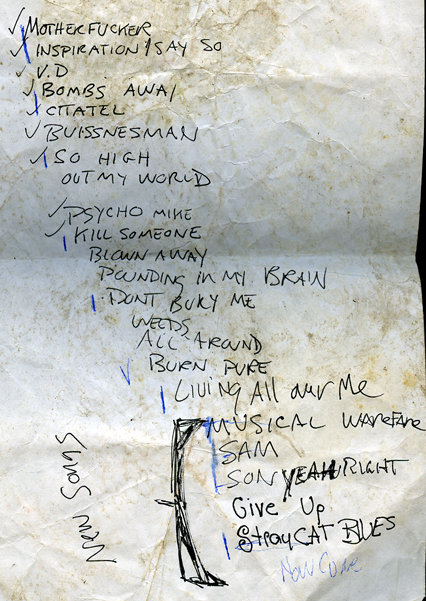 MOTHERFUCKER
INSPIRATION / SAY SO
V.D
BOMBS AWAY
CITATEL
BUISSNESMAN
SO HIGH
OUT MY WORLD
PSYCHO MIKE
KILL SOMEONE
BLOWN AWAY
POUNDING IN MY BRAIN
DONT BURY ME
WEEDS
ALL AROUND
BURN PURE
LIVING All OVER Me
MUSICAL WAREFARE
SAM
SON YEAH RIGHT
Give Up
STRAY CAT BLUES
New Songs